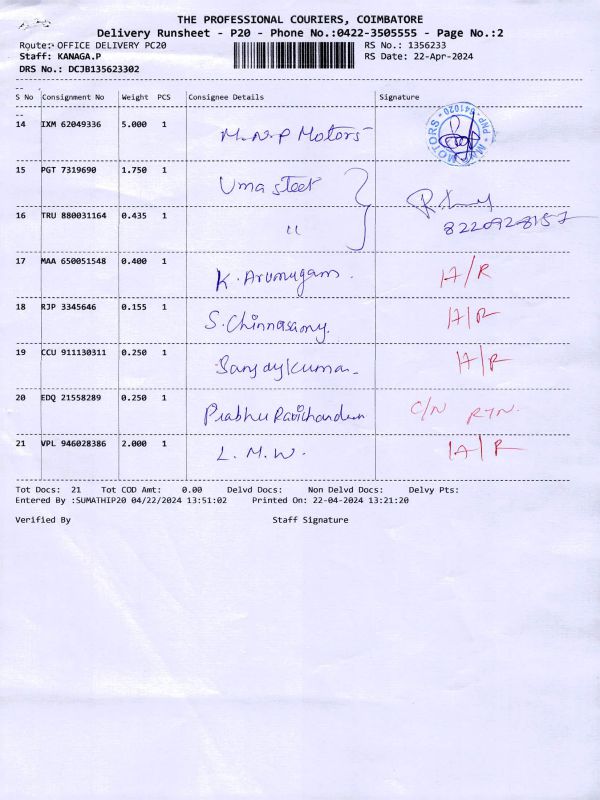 THE PROFESSIONAL COURIERS, COIMBATORE
Delivery Runsheet - P20 - Phone No.:0422-3505555 - Page No.:2
Route: OFFICE DELIVERY PC20 RS No.: 1356233
Staff: KANAGA.P RS Date: 22-Apr-2024
DRS No.: DCJB135623302
S No Consignment No Weight PCS Consignee Details Signature
14 IXM 62049336 5.000 1 M.N.P Motors MOTORS
15 PGT 7319690 1.750 1 Uma steel
16 TRU 880031164 0.435 1 " 8220928157
17 MAA 650051548 0.400 1 K. Arumugam. IA/R
18 RJP 3345646 0.155 1 S. Chinnasamy. IA/R
19 CCU 911130311 0.250 1 Sanjaykumar IA/R
20 EDQ 21558289 0.250 1 Prabhu Ravichandran C/N RTN.
21 VPL 946028386 2.000 1 L.M.W. IA/R
Tot Docs: 21 Tot COD Amt: 0.00 Delvd Docs: Non Delvd Docs: Delvy Pts:
Entered By :SUMATHIP20 04/22/2024 13:51:02 Printed On: 22-04-2024 13:21:20
Verified By Staff Signature